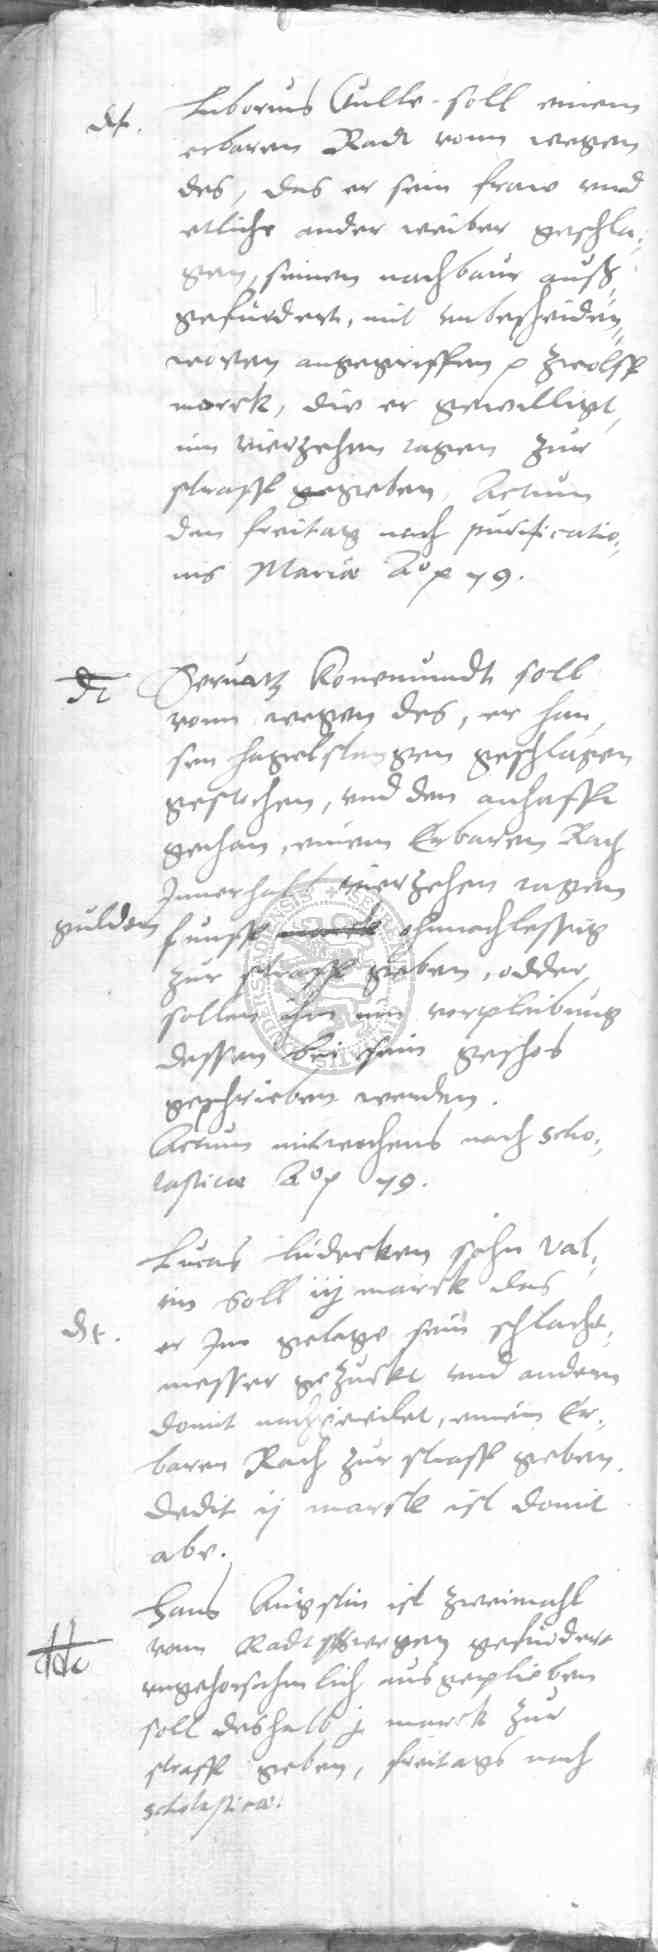 dt. Liborius Culle soll einem
erbaren Radt vonn wegen
des, das er sein fraw vnd
etliche ander weiber geschla,,
gen, seinen nachbaur auß,,
gefurdert, mit vnbescheiden,,
worten angegriffen p zwolff
marck, die er gewilligt,
inn vierzehen tagen zur
straff gegieben, Actum
den freitag nach purificatio,,
nis Mariæ Aº p 79.
dt Seruatz Konemundt soll
vonn wegen des, er han,,
sen hagelstangen geschlagen
gestochen, vnd den anhefft
gethan, einem Erbaren Rath
Innerhalb vierzehen tagen
gulden funff marck ohnnachlessig
zur straff gieben, odder
sollen ihm inn verpleibung
dessen bei sein geschos
geschrieben werden.
Actum mitwochens nach Scho,,
lasticæ Aº p 79.
Lucas ludecken sohn Val,,
tin soll iij marck das
dt. er Im gelage sein schlacht,,
messer gezuckt vnd andern
domit nachgeeilet, einem Er,,
baren Rath zur straff geben.
dedit ij marck ist domit
abe.
Hans Augstin ist zweimahl
vom Radtswegen gefurdert
vngehorsamlich ausgeplieben
soll deshalb j marck zur
straff geben, freitags nach
scholasticæ.